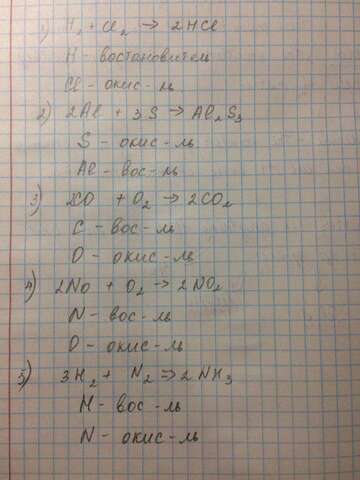 1) H₂ + Cl₂ → 2HCl
H - востановитель
Cl - окис-ль
2) 2Al + 3S → Al₂S₃
S - окис-ль
Al - вос-ль
3) 2CO + O₂ → 2CO₂
C - вос-ль
O - окис-ль
4) 2No + O₂ → 2NO₂
N - вос-ль
O - окис-ль
5) 3H₂ + N₂ ⇒ 2NH₃
H - вос-ль
N - окис-ль